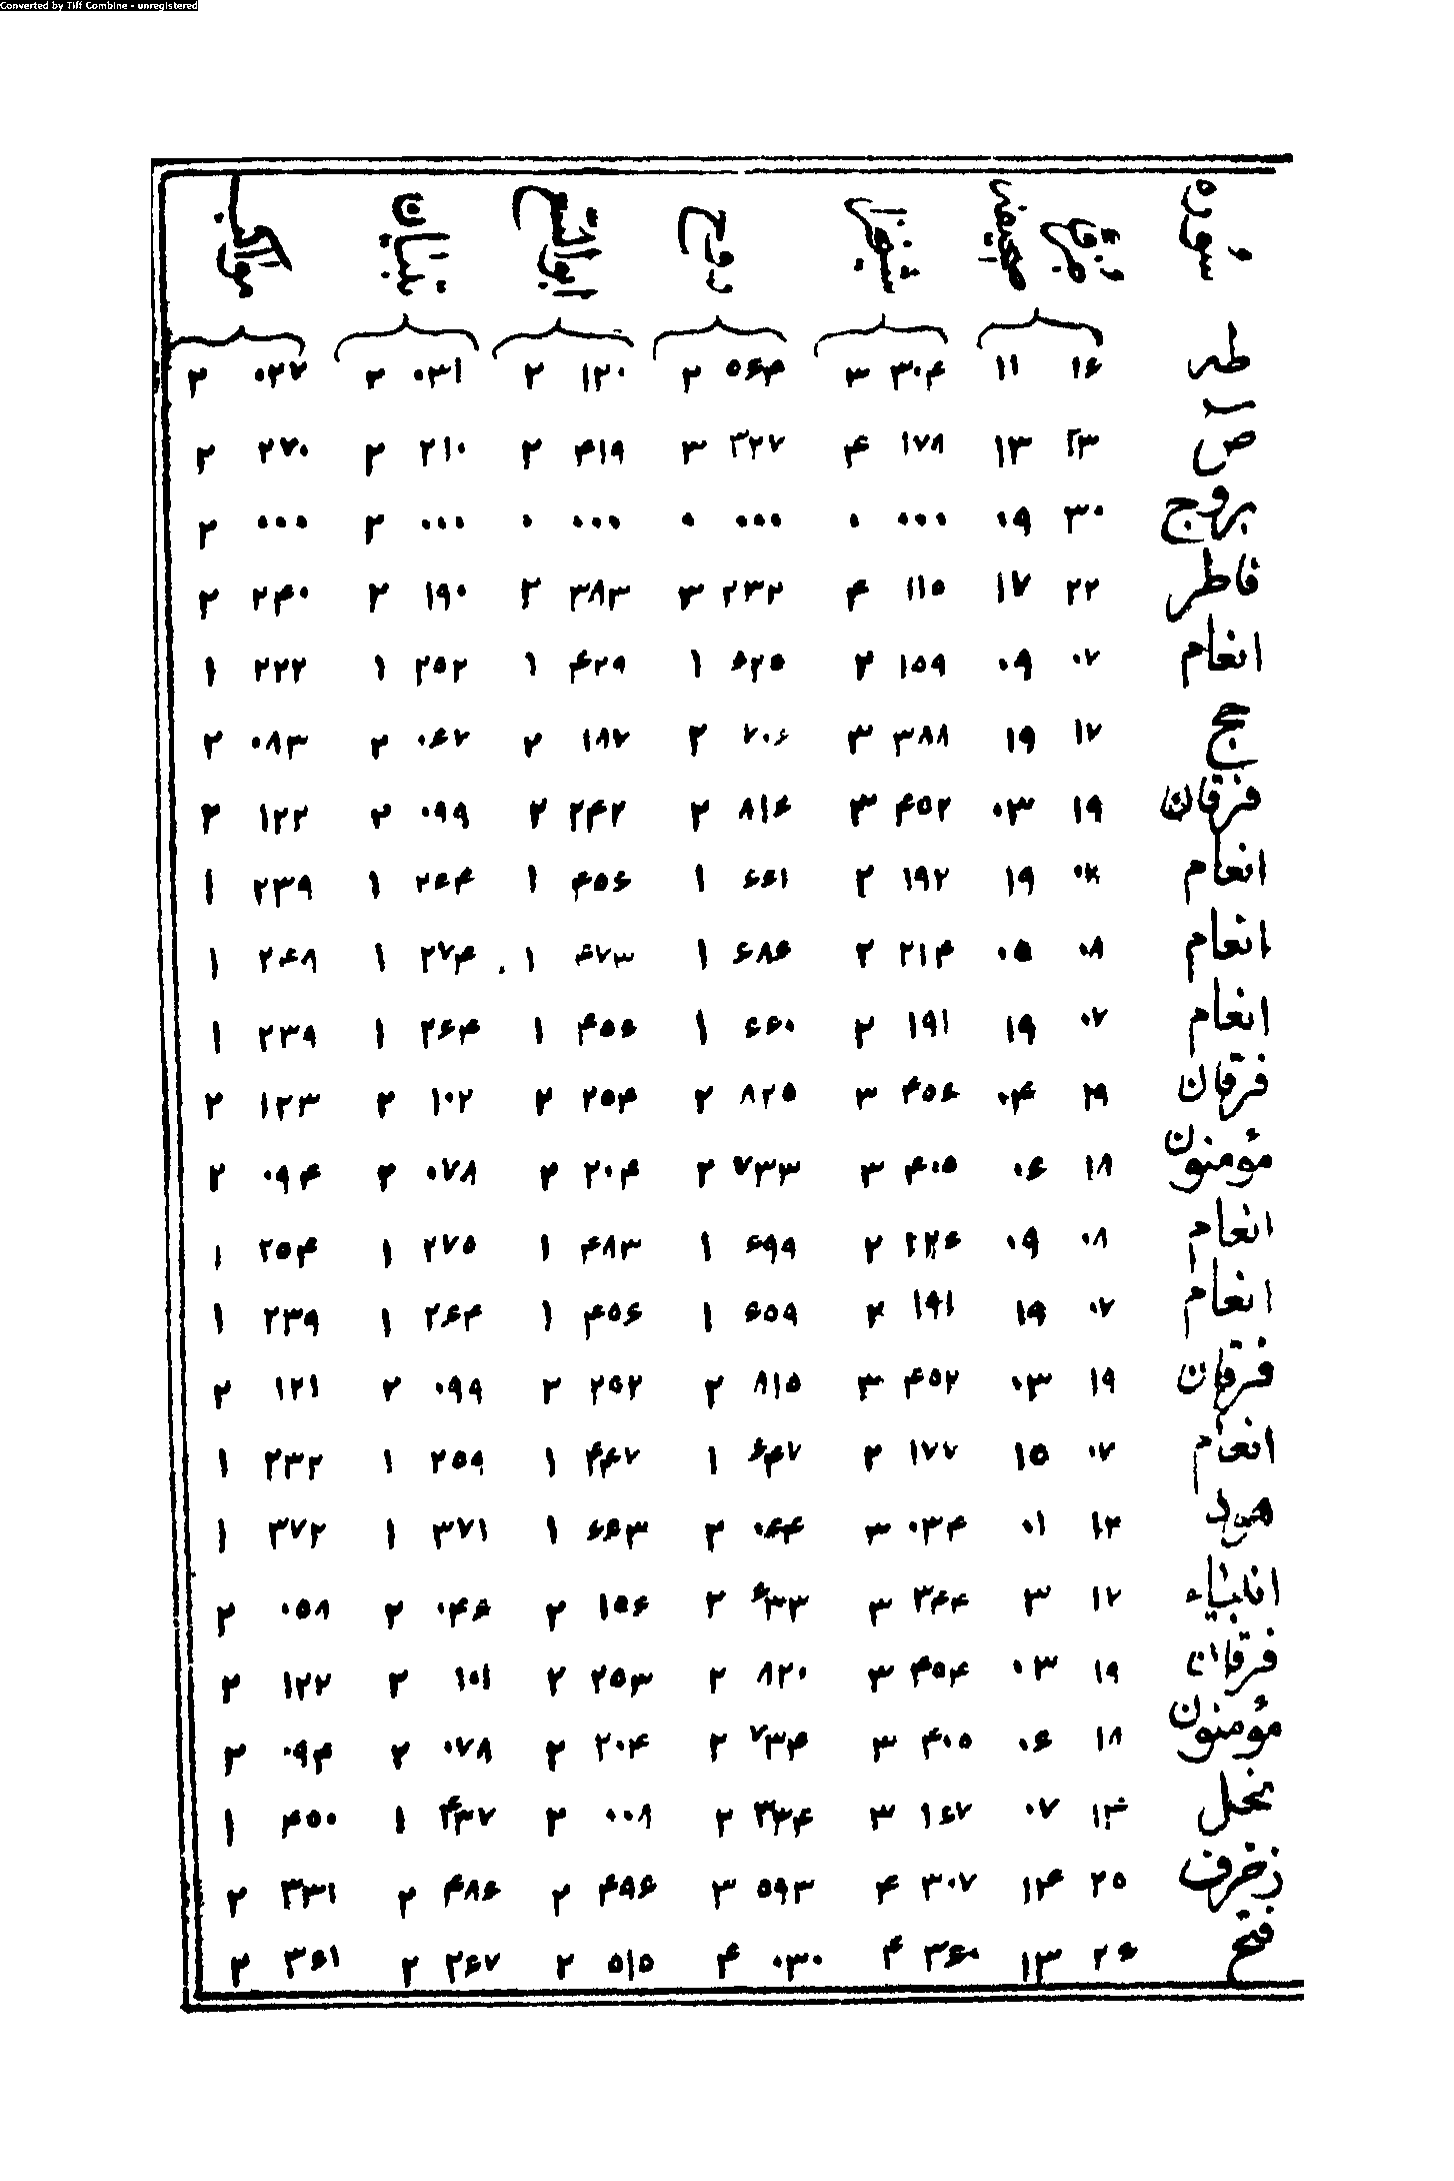 Converted by Tiff Combine - unregistered
سوره ورق صحیفه روح ابوالفتح تبیان مواکب
طه ۱۶ ۱۱ ۳۰۴ ۳ ۵۶۴ ۲ ۱۲۰ ۲ ۰۳۱ ۲ ۰۲۷ ۲
ص ۲۳ ۱۳ ۱۷۸ ۴ ۳۲۷ ۳ ۴۱۹ ۲ ۲۱۰ ۲ ۲۷۰ ۲
بروج ۳۰ ۰۹ ۰۰۰ ۰ ۰۰۰ ۰ ۰۰۰ ۰ ۰۰۰ ۲ ۰۰۰ ۲
فاطر ۲۲ ۱۷ ۱۱۵ ۴ ۲۳۲ ۳ ۳۸۳ ۲ ۱۹۰ ۲ ۲۴۰ ۲
انعام ۰۷ ۰۹ ۱۵۹ ۲ ۶۲۵ ۱ ۴۲۹ ۱ ۲۵۲ ۱ ۲۲۲ ۱
حج ۱۷ ۱۹ ۳۸۸ ۳ ۷۰۶ ۲ ۱۸۷ ۲ ۰۶۷ ۲ ۰۸۳ ۲
فرقان ۱۹ ۰۳ ۴۵۲ ۳ ۸۱۶ ۲ ۲۴۲ ۲ ۰۹۹ ۲ ۱۲۲ ۲
انعام ۱۹ ۱۹۲ ۲ ۶۶۱ ۱ ۴۵۶ ۱ ۲۶۴ ۱ ۲۳۹ ۱
انعام ۰۸ ۰۵ ۲۱۴ ۲ ۶۸۶ ۱ ۴۷۳ ۱ ۲۷۴ ۱ ۲۴۸ ۱
انعام ۰۷ ۱۹ ۱۹۱ ۲ ۶۶۰ ۱ ۴۵۶ ۱ ۲۶۴ ۱ ۲۳۹ ۱
فرقان ۰۴ ۴۵۶ ۳ ۸۲۵ ۲ ۲۵۴ ۲ ۱۰۲ ۲ ۱۲۳ ۲
مؤمنون ۱۸ ۰۶ ۴۰۵ ۳ ۷۳۳ ۲ ۲۰۴ ۲ ۰۷۸ ۲ ۰۹۴ ۲
انعام ۰۸ ۰۹ ۲۲۶ ۲ ۶۹۹ ۱ ۴۸۳ ۱ ۲۷۵ ۱ ۲۵۴ ۱
انعام ۰۷ ۱۹ ۱۹۱ ۲ ۶۵۹ ۱ ۴۵۶ ۱ ۲۶۴ ۱ ۲۳۹ ۱
فرقان ۱۹ ۰۳ ۴۵۲ ۳ ۸۱۵ ۲ ۲۵۲ ۲ ۰۹۹ ۲ ۱۲۱ ۲
انعام ۰۷ ۱۵ ۱۷۷ ۲ ۶۴۷ ۱ ۴۴۷ ۱ ۲۵۹ ۱ ۲۳۲ ۱
هود ۱۲ ۰۱ ۰۳۴ ۳ ۰۶۴ ۲ ۶۶۳ ۱ ۳۷۱ ۱ ۳۷۲ ۱
انبیاء ۱۷ ۳ ۳۴۴ ۳ ۶۳۳ ۲ ۱۵۶ ۲ ۰۴۶ ۲ ۰۵۸ ۲
فرقان ۱۹ ۰۳ ۴۵۴ ۳ ۸۲۰ ۲ ۲۵۳ ۲ ۱۰۱ ۲ ۱۲۲ ۲
مؤمنون ۱۸ ۰۶ ۴۰۵ ۳ ۷۳۴ ۲ ۲۰۴ ۲ ۰۷۸ ۲ ۰۹۴ ۲
نحل ۱۴ ۰۷ ۱۶۷ ۳ ۳۳۴ ۲ ۰۰۸ ۲ ۴۳۷ ۱ ۴۵۰ ۱
زخرف ۲۵ ۱۴ ۳۰۷ ۴ ۵۹۳ ۳ ۴۹۶ ۲ ۴۸۶ ۲ ۳۳۱ ۲
فتح ۲۶ ۱۳ ۳۶۰ ۴ ۰۳۰ ۴ ۵۱۵ ۲ ۲۶۷ ۲ ۳۶۱ ۲